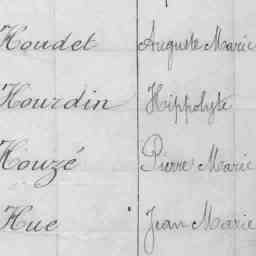 Houdet Auguste Marie
Hourdin Hippolyte
Houzé Pierre Marie
Hue Jean Marie